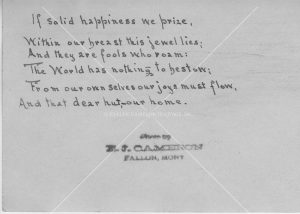 If solid happiness we prize,
Within our breast this jewel lies;
And they are fools who roam:
The World has nothing to bestow;
From our own selves our joys must flow,
And that dear hut, our home.
Photo by
E. J. CAMERON
FALLON, MONT